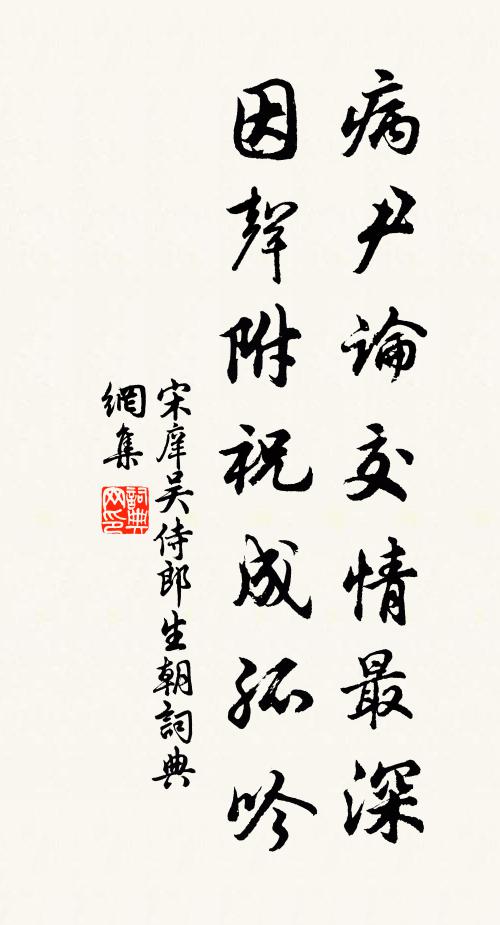 病尹論交情最深
因聲附祝成孤吟
宋庠吳侍郎生朝詞典
網集
詞典
网印